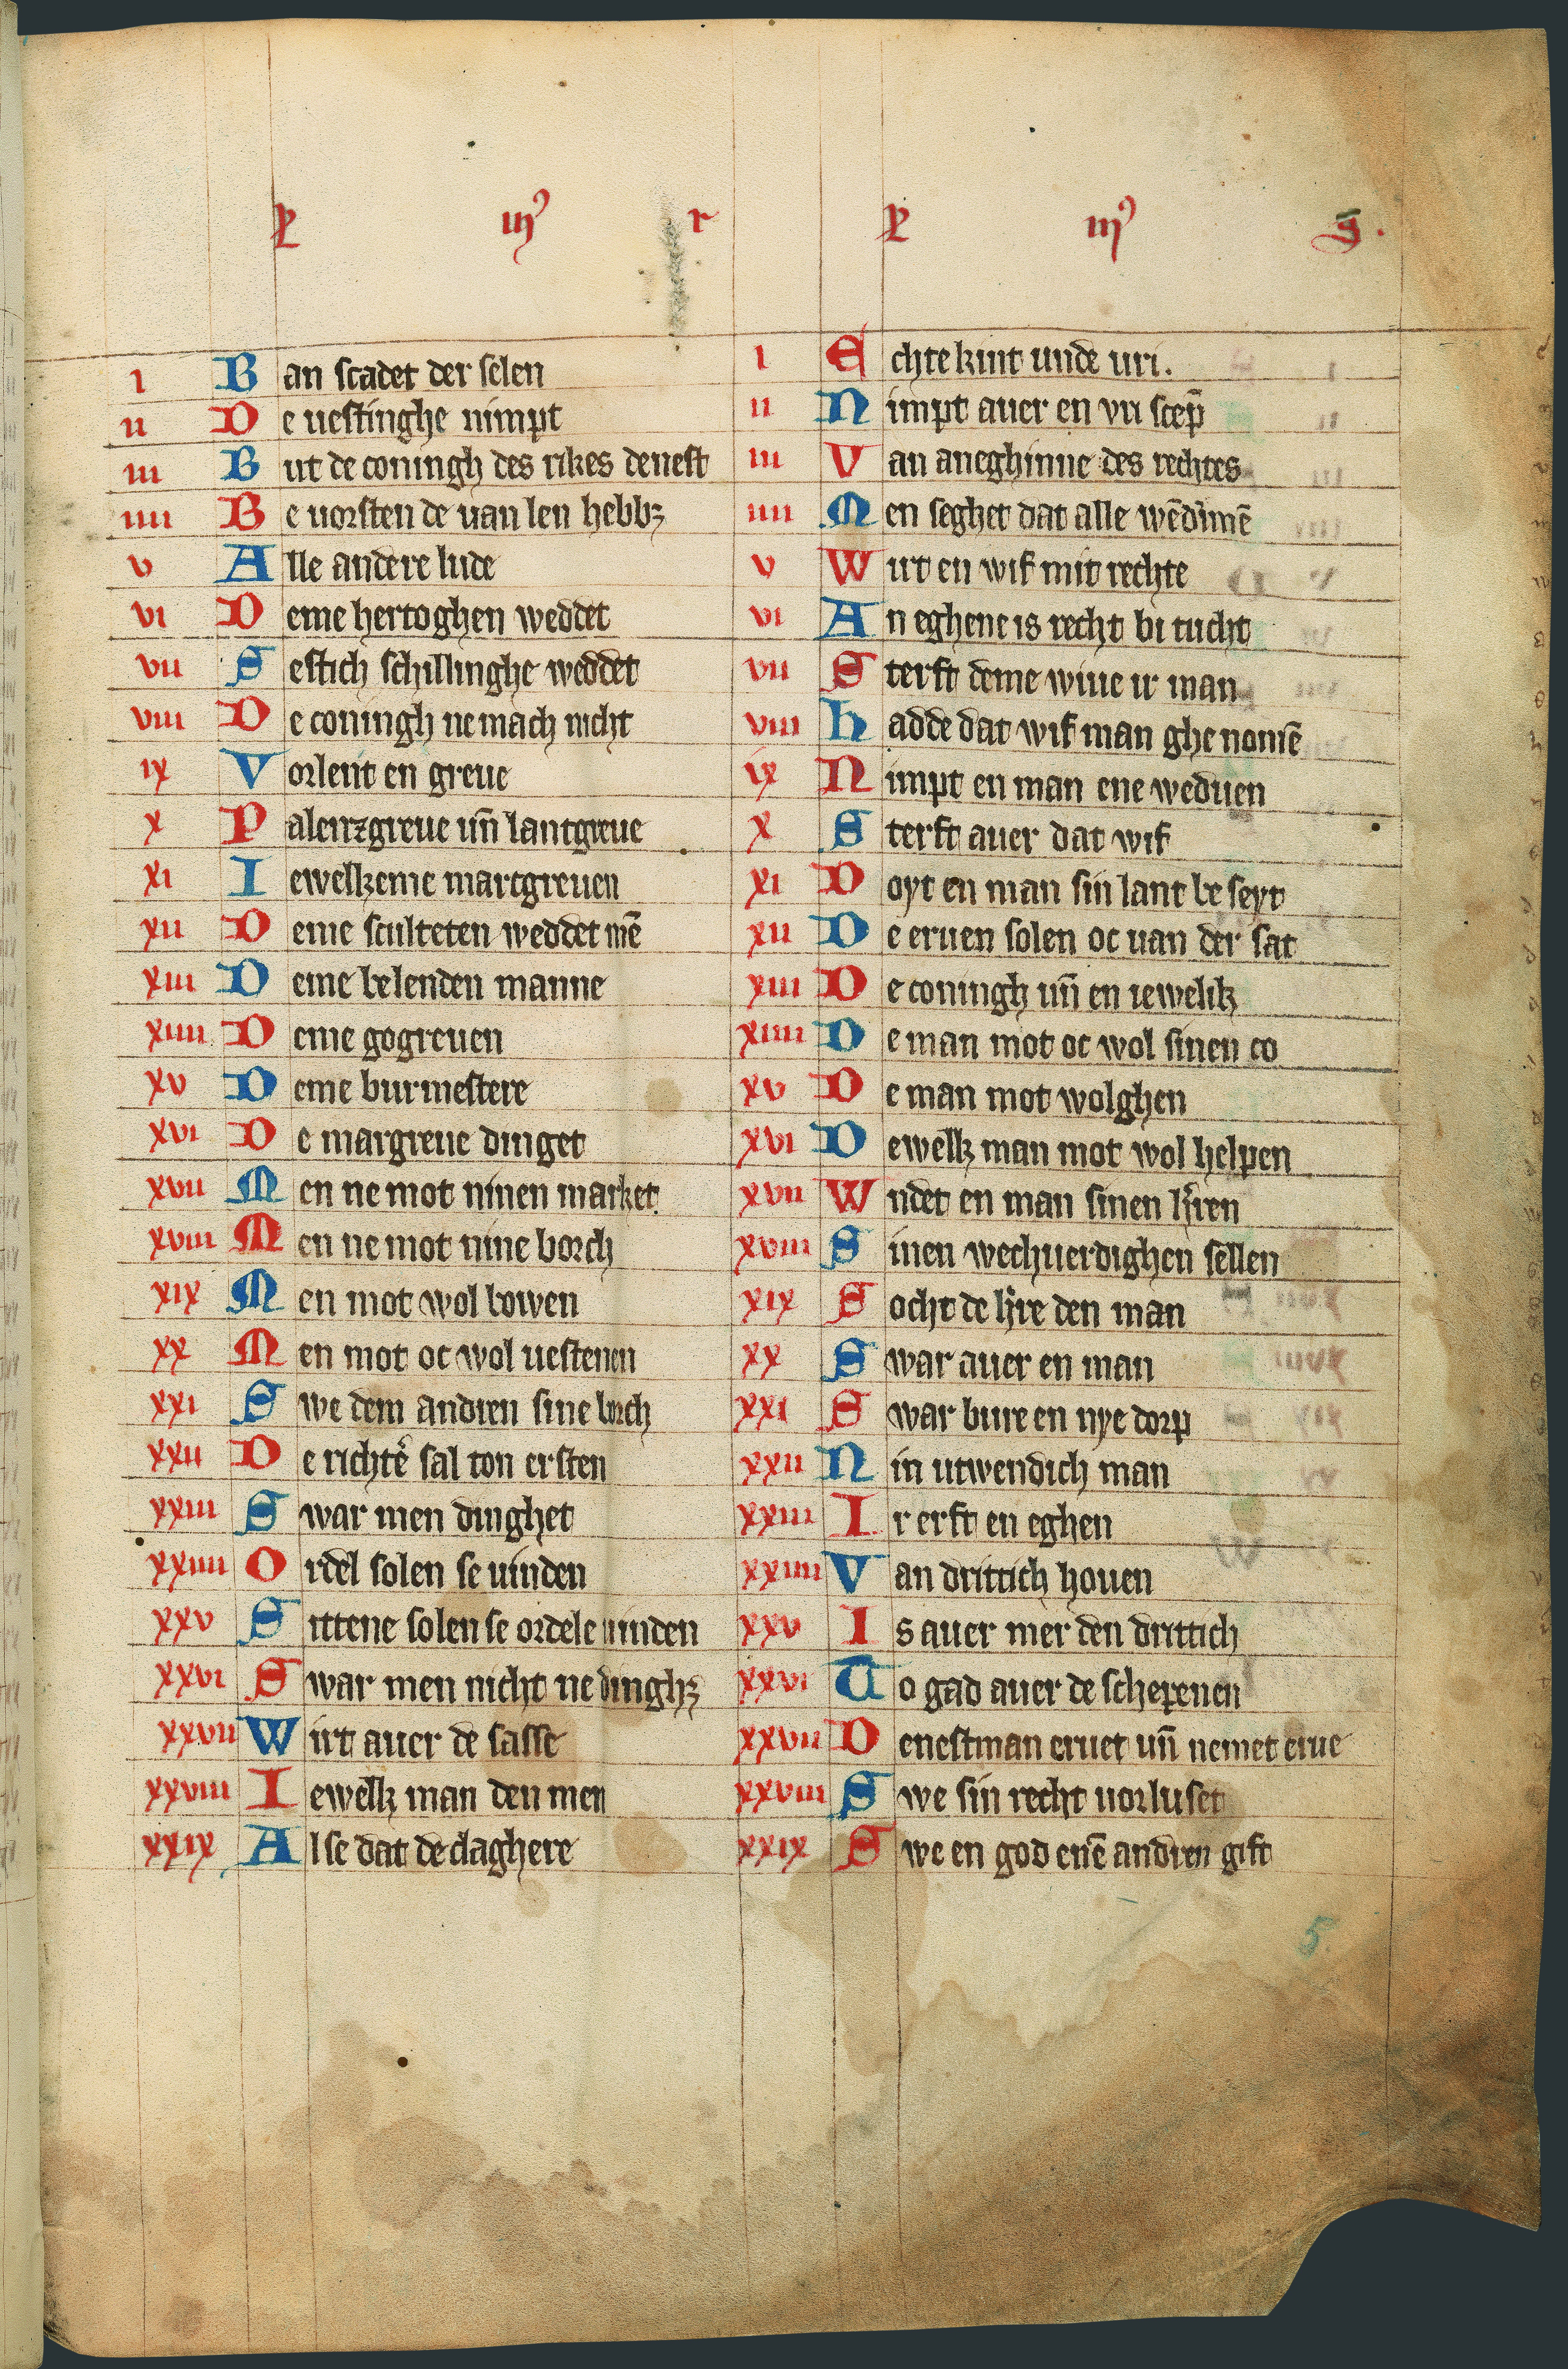 i Ban scadet der selen
ii De uestinghe nimpt
iii But de coningh des rikes denest
iiii Be uorsten de uan len hebbꝫ
v Alle andere lude
vi Deme hertoghen weddet
vii Sestich schillinghe weddet
viii De coningh ne mach nicht
ix Vorlent en greue
x Palenzgreue un̄ lantgreue
xi Iewelkeme marcgreuen
xii Deme sculteten weddet mē
xiii Deme belenden manne
xiiii Deme gogreuen
xv Deme burmestere
xvi De margreue dinget
xvii Men ne mot ninen market
xviii Men ne mot nine borch
xix Men mot wol bowen
xx Men mot oc wol uestenen
xxi Swe dem andren sine borch
xxii De richte᷎ sal ton ersten
xxiii Swar men dinghet
xxiiii Ordel solen se uinden
xxv Sittene solen se ordele uinden
xxvi Swar men nicht ne dinghꝫ
xxvii Wirt auer de sasse
xxviii Iewelk man den men
xxix Alse dat de claghere
i Echte kint unde uri.
ii Nimpt auer en vri scep̄
iii Van aneghinne des rechtes
iiii Men seghet dat alle
v Wirt en wif mit rechte
vi An eghene is recht bi tucht
vii Sterft deme wiue ir man
viii Hadde dat wif man ghe nomē
ix Nimpt en man ene weduen
x Sterft auer dat wif
xi Doyt en man sin lant be seyt
xii De eruen solen oc uan der sat
xiii De coningh un̄ en iewelik
xiiii De man mot oc wol sinen co
xv De man mot wolghen
xvi Dewelk man mot wol helpen
xvii Wndet en man sinen
xviii Sinen wechuerdighen sellen
xix Socht de den man
xx Swar auer en man
xxi Swar bure en nye dorp
xxii Nin utwendich man
xxiii Ir erft en eghen
xxiiii Van drittich houen
xxv Is auer mer den drittich
xxvi To gad auer de schepenen
xxvii Denestman eruet un̄ nemet erue
xxviii Swe sin recht uorluset
xxix Swe en god enē andren gift
5